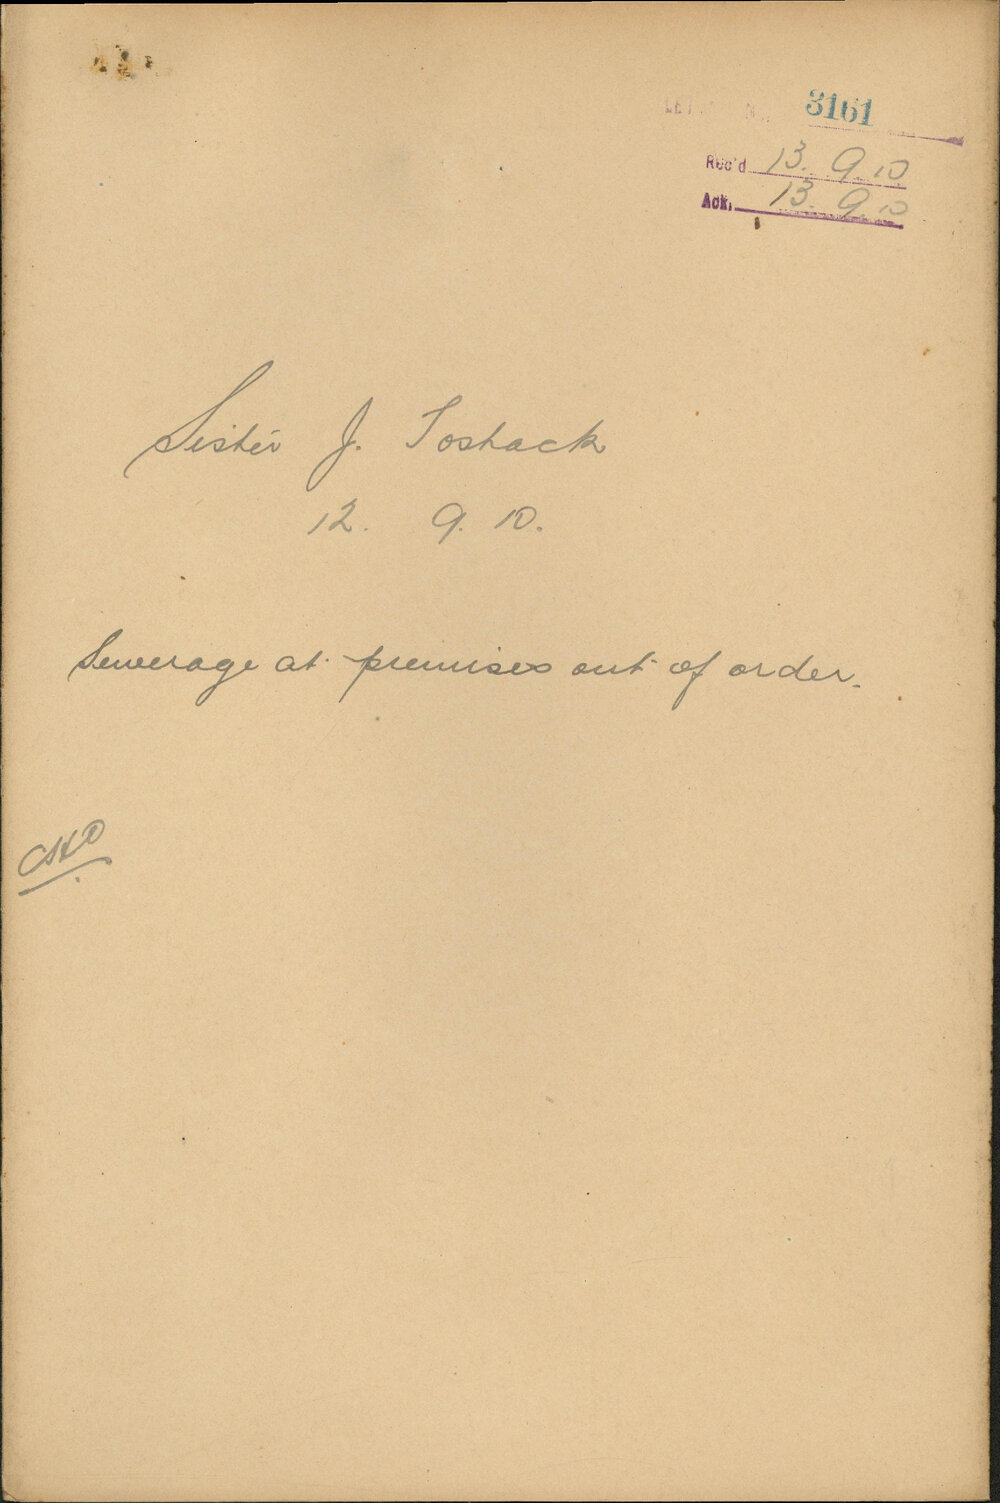 3161
Rec'd 13. 9. 10
Ack. 13. 9 10
Sister J. Toshack
12. 9. 10.
Sewerage at premises out of order.